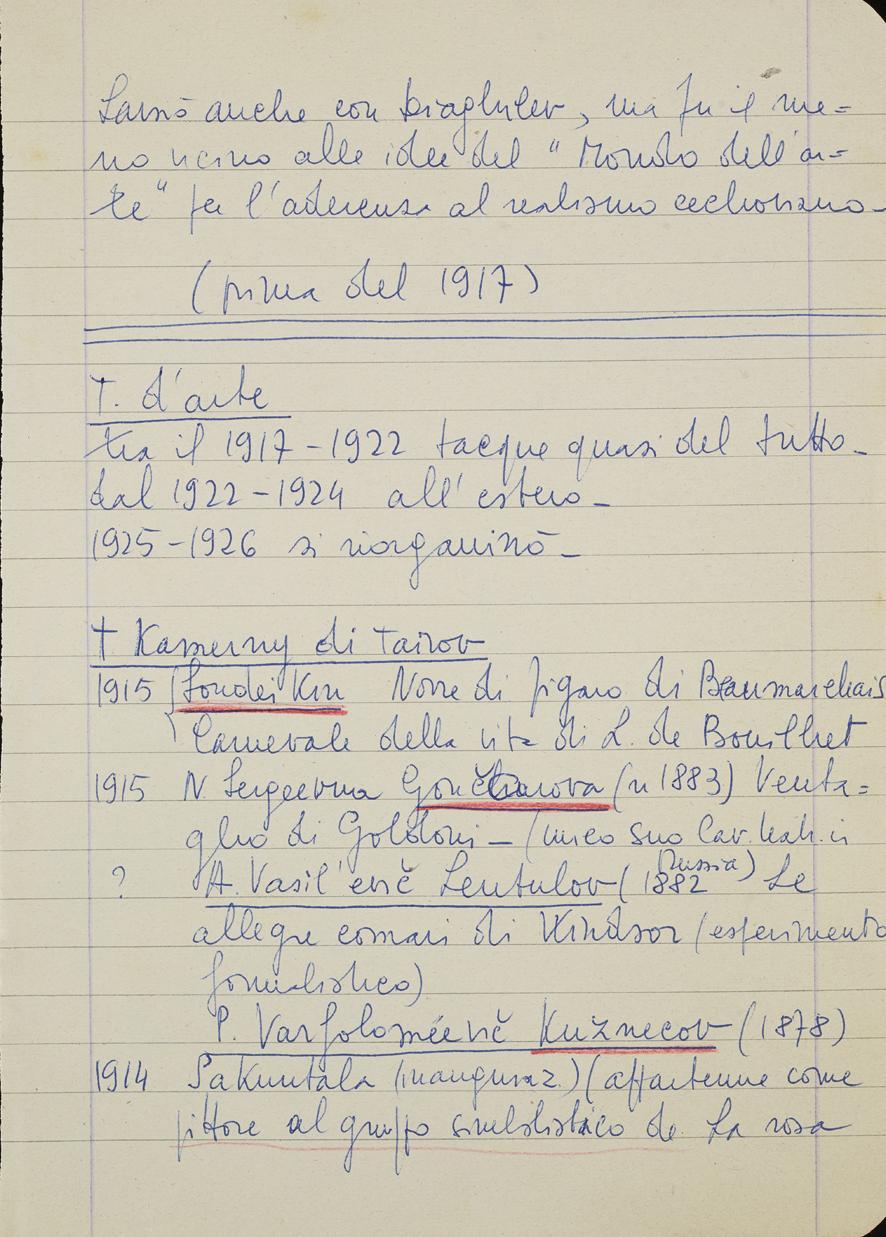 Lavorò anche con Diaghilev, ma fu il me=
no vicino alle idee del "Mondo dell'ar=
te" per l'aderenza al realismo cechoviano_
(prima del 1917)
T. d'arte
tra il 1917-1922 tacque quasi del tutto_
dal 1922-1924 all'estero_
1925-1926 si riorganizzò_
T Kamerny di Tairov
1915 Nozze di figaro di Beaumarchais
Carnevale della vita di L. de Bouilhet
1915 N Sergeevna Gončarova (n 1883) Venta=
glio di Goldoni_ (unico suo lav. teatr. in
? A. Vasil'evič Lentulov (1882 Le
Russia)
allegre comari di Windsor (esperimento
formalistico)
P. Varfoloméevič Kužnecov (1878)
1914 Sakuntala (inauguraz.) (appartenne come
pittore al gruppo simbolistico de La rosa